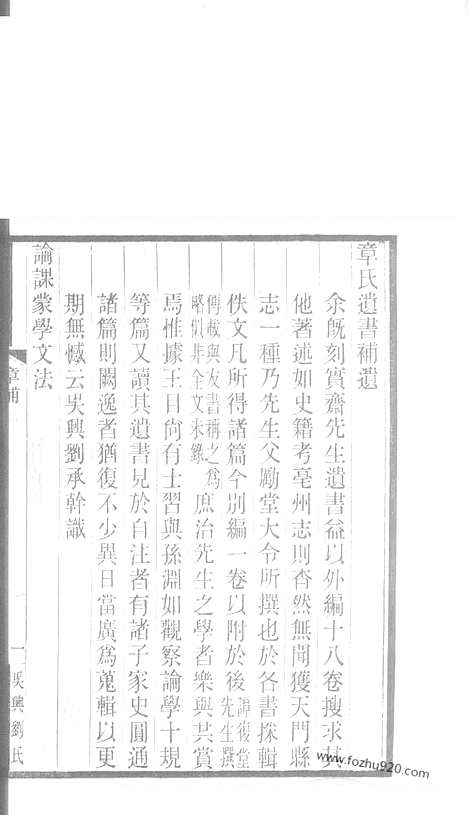 章氏遺書補遺
余既刻實齋先生遺書益以外編十八卷搜求其
他著述如史籍考亳州志則杳然無聞獲天門縣
志一種乃先生父勵堂大令所撰也於各書採輯
佚文凡所得諸篇今別編一卷以附於後譚復堂先生撰
傳載與友書稱之為略似非全文未錄庶治先生之學者樂與其賞
焉惟據王目尚有士習與孫淵如觀察論學十規
等篇又讀其遺書見於自注者有諸子家史圓通
諸篇則闕逸者猶復不少異日當廣為蒐輯以更
期無憾云吳興劉承幹識
論課蒙學文法
章補
一
吳興劉氏
www.fozhu920.com